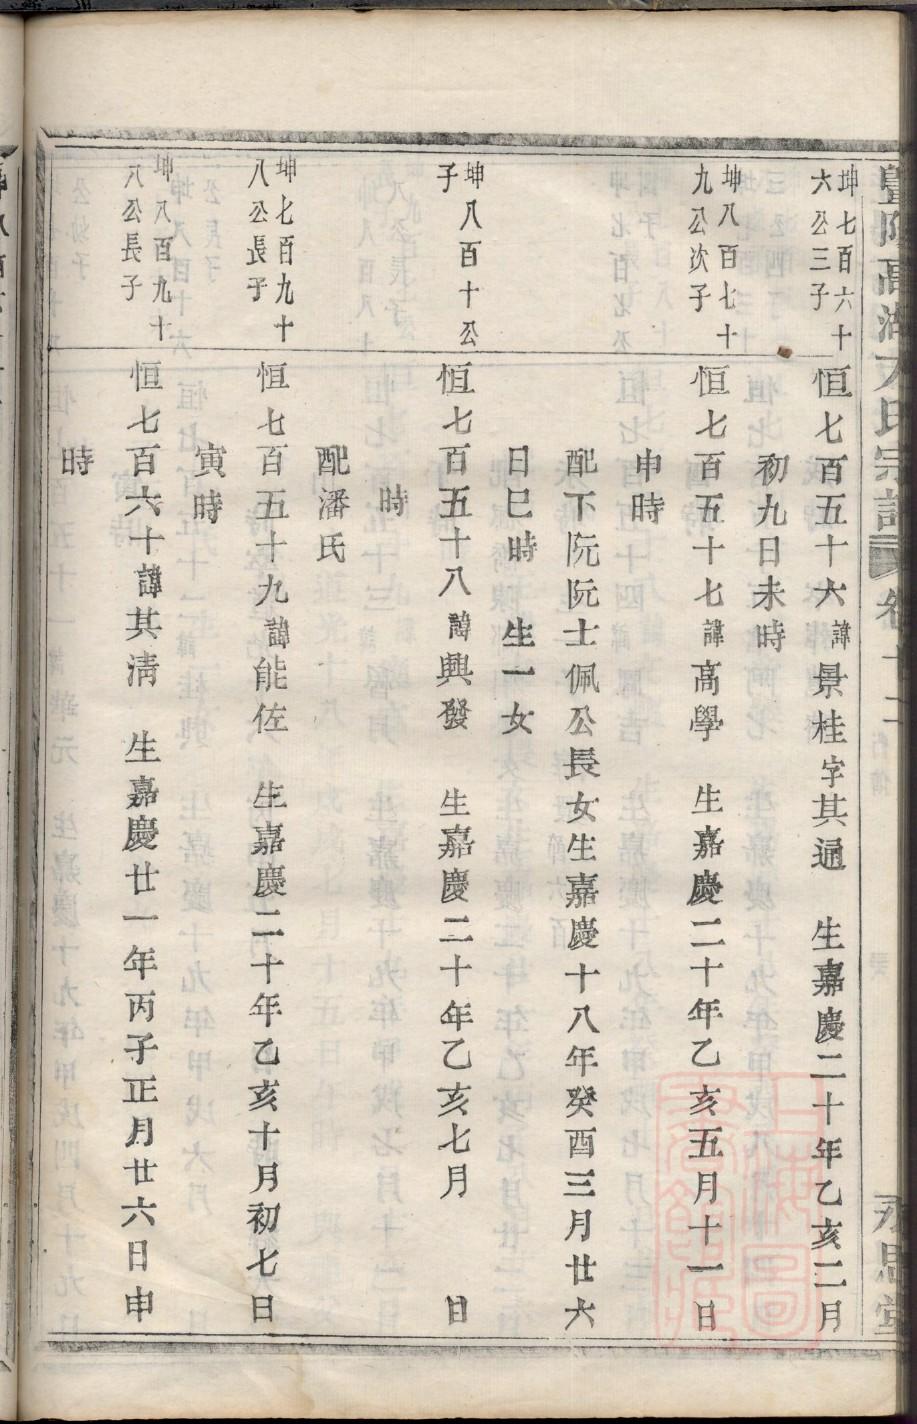 暨陽高湖 氏宗譜 卷十二 永思堂
坤七百六十
六公三子
恒七百五十六諱景桂字其通 生嘉慶二十年乙亥二月
初九日未時
坤八百七十
九公次子
恒七百五十七諱高學 生嘉慶二十年乙亥五月十一日
申時
配下阮阮士佩公長女生嘉慶十八年癸酉三月廿六
日巳時 生一女
坤八百十公
子
恒七百五十八諱興發 生嘉慶二十年乙亥七月 日
時
配潘氏
坤七百九十
八公長子
恒七百五十九諱能佐 生嘉慶二十年乙亥十月初七日
寅時
坤八百九十
八公長子
恒七百六十諱其淸 生嘉慶廿一年丙子正月廿六日申
時